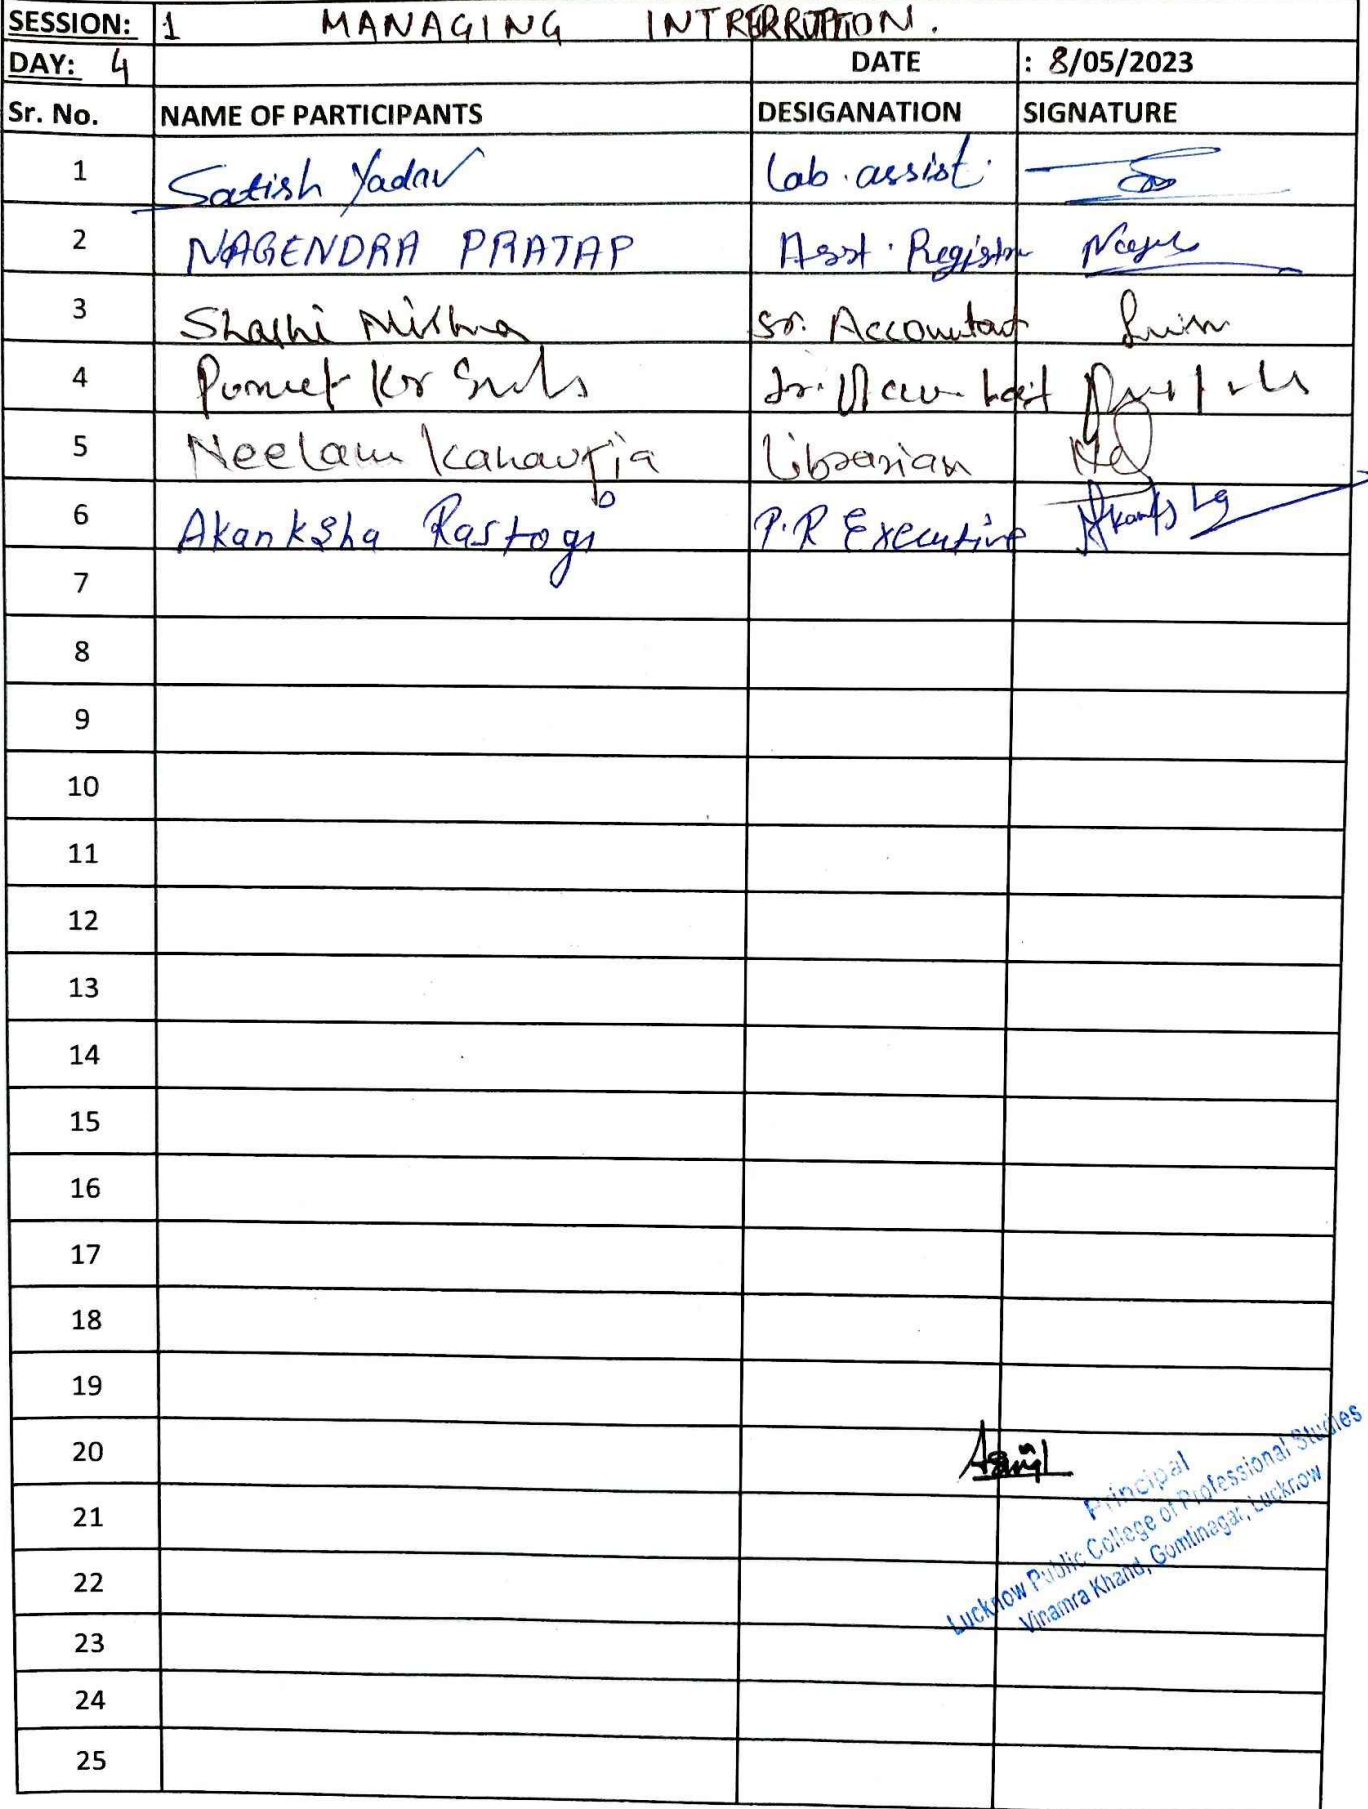 SESSION: 1 MANAGING INTRERRUPTION.
DAY: 4 DATE : 8/05/2023
Sr. No. NAME OF PARTICIPANTS DESIGANATION SIGNATURE
1 Satish Yadav Lab. assist.
2 NAGENDRA PRATAP Asst. Registr
3 Shashi Mishra Sr. Accountant
4 Puneet Kr
5 Neelam Kanaujia Librarian
6 Akanksha Rastogi P.R Executive
7
8
9
10
11
12
13
14
15
16
17
18
19
20
21
22
23
24
25
Principal
Lucknow Public College of Professional Studies
Vinamra Khand, Gomtinagar, Lucknow